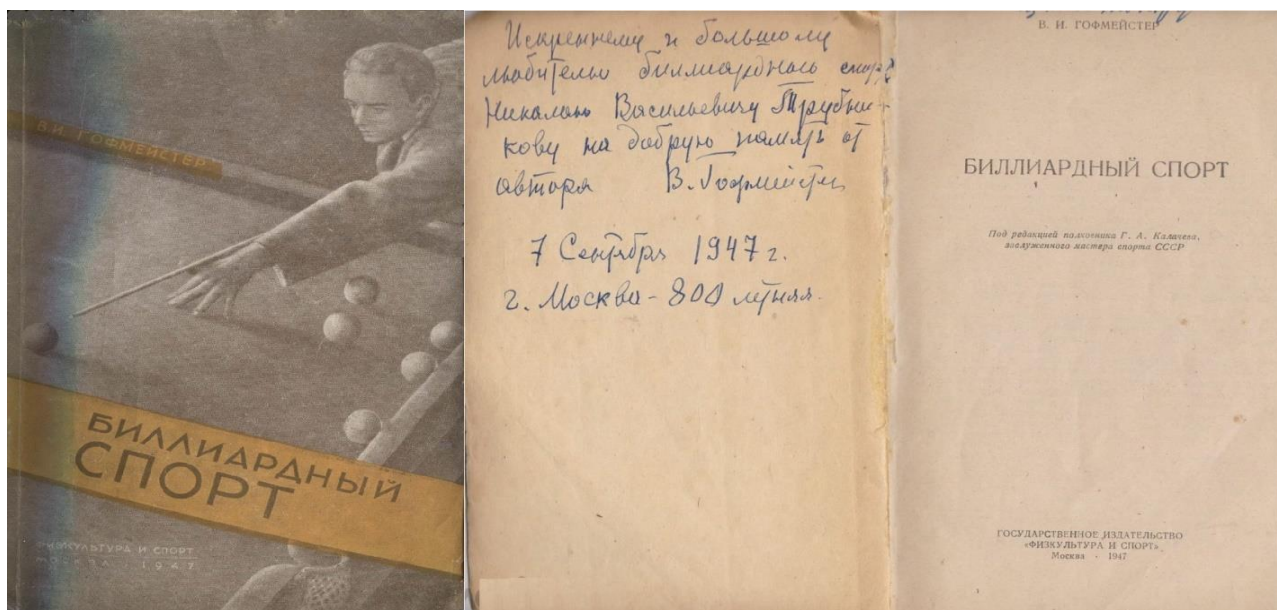 В. И. ГОФМЕЙСТЕР
БИЛЛИАРДНЫЙ
СПОРТ
ФИЗКУЛЬТУРА И СПОРТ
МОСКВА 1947
Искреннему и большому
любителю биллиардного спорт
Николаю Васильевичу Трубни-
кову на добрую память от
автора В. Гофмейстер
7 Сентября 1947 г.
г. Москва - 800 летняя.
В. И. ГОФМЕЙСТЕР
БИЛЛИАРДНЫЙ СПОРТ
Под редакцией полковника Г. А. Калачева,
заслуженного мастера спорта СССР
ГОСУДАРСТВЕННОЕ ИЗДАТЕЛЬСТВО
«ФИЗКУЛЬТУРА И СПОРТ»
Москва · 1947